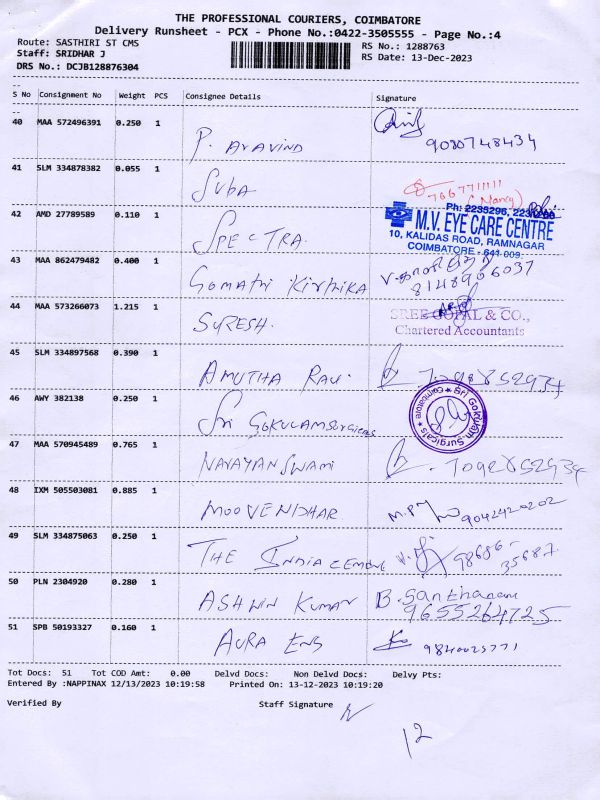 THE PROFESSIONAL COURIERS, COIMBATORE
Delivery Runsheet - PCX - Phone No.:0422-3505555 - Page No.:4
Route: SASTHIRI ST CMS
Staff: SRIDHAR J
DRS No.: DCJB128876304
RS No.: 1288763
RS Date: 13-Dec-2023
S No Consignment No Weight PCS Consignee Details Signature
40 MAA 572496391 0.250 1
P. Aravind 9080748434
41 SLM 334878382 0.055 1
Suba 7667711111
(Nancy)
42 AMD 27789589 0.110 1
Ph: 2235296,
M.V. EYE CARE CENTRE
10, KALIDAS ROAD, RAMNAGAR
COIMBATORE - 641 009.
SPECTRA.
43 MAA 862479482 0.400 1
Gomathi Kirthika 8148906037
44 MAA 573266073 1.215 1
SREE GOPAL & CO.,
Chartered Accountants
SURESH.
45 SLM 334897568 0.390 1
AMUTHA RAVI.
46 AWY 382138 0.250 1
Sri GOKULAM Surgicals
Sri Gokulam Surgicals
Coimbatore
47 MAA 570945489 0.765 1
NARAYANSWAMI 7092852934
48 IXM 505503081 0.885 1
MOOVENDHAR. 9042420202
49 SLM 334875063 0.250 1
THE INDIA CEMENT 98686-
35687
50 PLN 2304920 0.280 1
ASHWIN KUMAR B. Santhanam
9655264725
51 SPB 50193327 0.160 1
AURA ENS 9840025771
Tot Docs: 51 Tot COD Amt: 0.00 Delvd Docs: Non Delvd Docs: Delvy Pts:
Entered By :NAPPINAX 12/13/2023 10:19:58 Printed On: 13-12-2023 10:19:20
Verified By Staff Signature
12